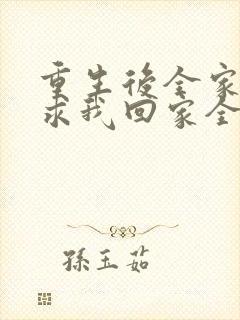 重生後全家
求我回家全
孫玉茹